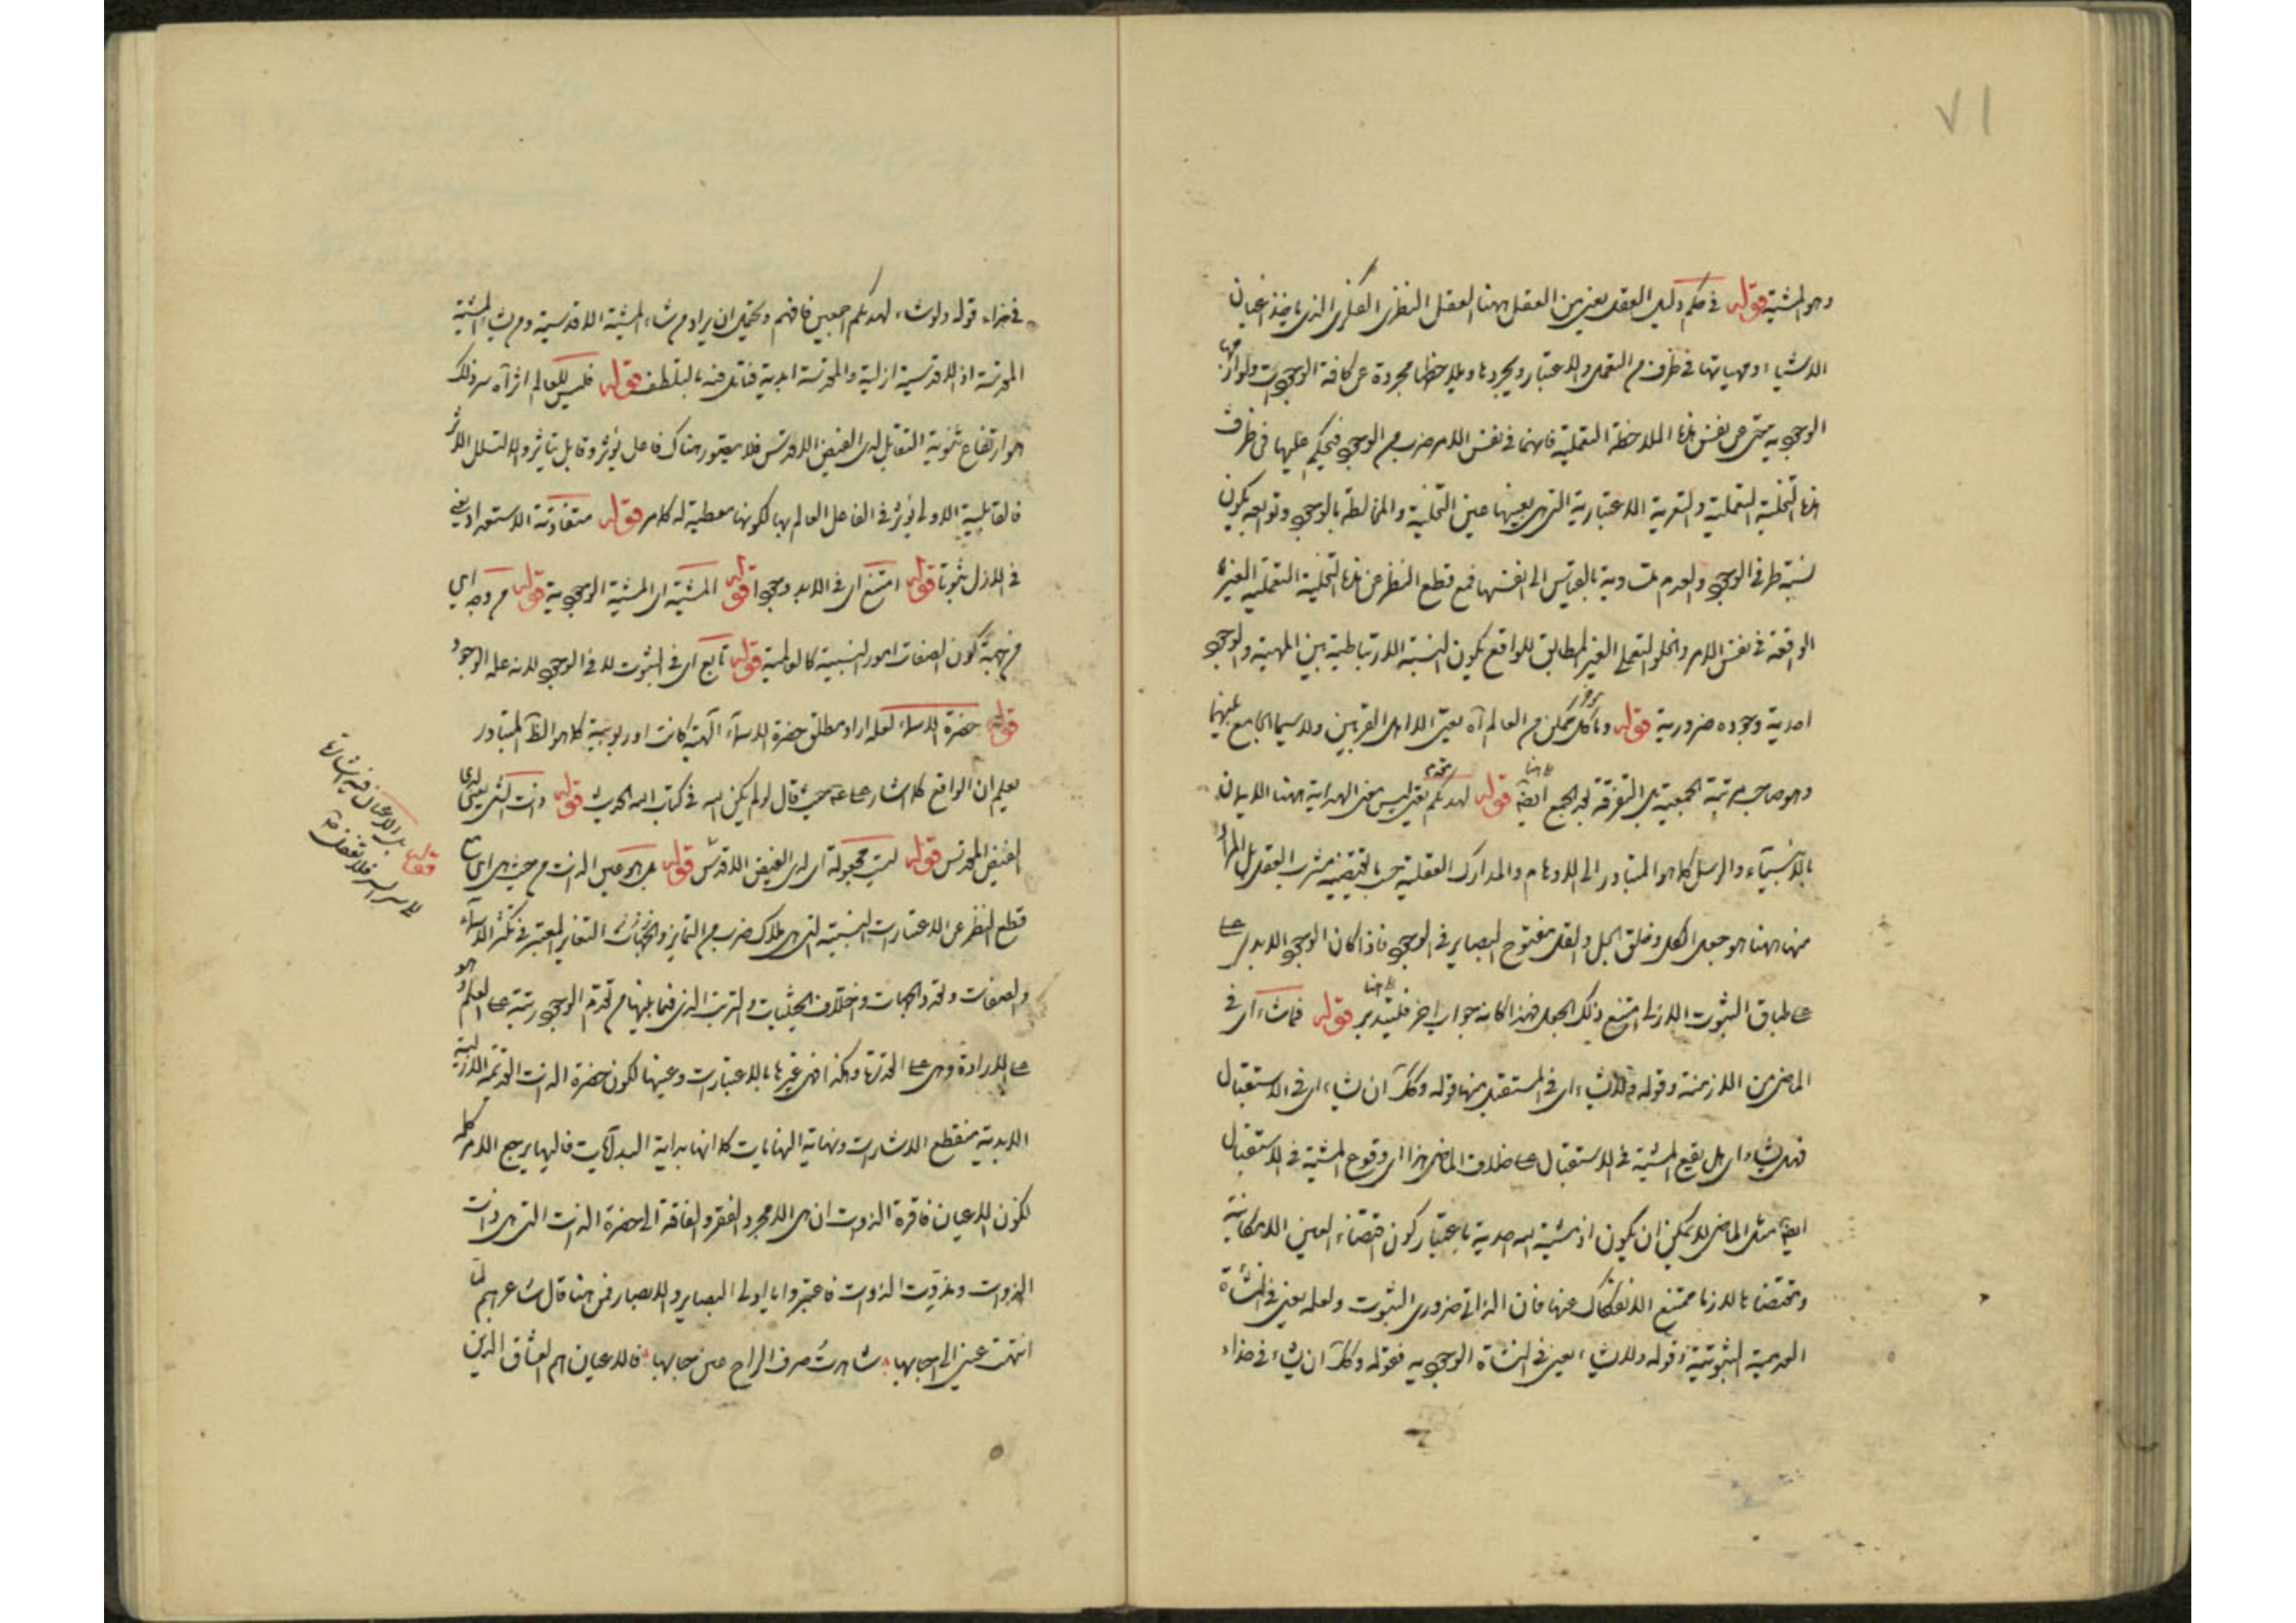 ٧١
وهو المشية قوله في حكم دليل العقل يعني من العقل ههنا العقل النظري الفكري الذي ياخذ اعيان
الاشياء ومهياتها في ظرف من التعمل والاعتبار ويجردها ويلاحظها مجردة عن كافة الوجودات ولوازمها
الوجودية حتى عن نفس هذه الملاحظة التعملية فانها في نفس الامر ضرب من الوجود فيحكم عليها في ظرف
هذه التخلية التعملية والتعرية الاعتبارية التي هي بعينها عين التحلية والمخالطة بالوجود وتوابعه بكون
نسبة طرفي الوجود والعدم متساوية بالقياس الى نفسها فمع قطع النظر عن هذه التخلية التعملية الغير
الواقعة في نفس الامر والخلو التعملي الغير المطابق للواقع يكون النسبة الارتباطية بين المهية والوجود
احدية وجوده ضرورية قوله وما كل ممكن من العالم آه يعني الا اهل القربين ولا سيما الجامع بينهما
وهو صاحب مرتبة الجمعية بل التفرقة بعد الجمع ايضا قوله لهديكم يعني ليس معنى الهداية ههنا الايمان
بالانبياء والرسل كما هو المتبادر الى الاوهام والمدارك العقلية حسبما يقتضيه مشرب العقل بل المراد
منها ههنا هو جعل الكل وخلق الجل والقل مفتوح البصاير في الوجود فاذا كان الوجود الابدي على
على طباق الثبوت الازلي امتنع ذلك الجعل فهذا كانه جواب اخر فليتدبر قوله فما شاء اى في
الماضي من الازمنة وقوله ولا يشاء اى في المستقبل منها قوله وكذلك ان يشاء اى في الاستقبال
فهل يشاء اى هل يقع المشية في الاستقبال على خلاف الماضي هذا اى وقوع المشية في الاستقبال
ايضا مثل الماضي لا يمكن ان يكون اذ مشيته احدية باعتبار كون اقتضاء العين الامكانية
ومقتضاها لازما ممتنع الانفكاك عنها فان الذاتي ضروري الثبوت ولعله يعني في النشأة
العدمية الثبوتية وقوله ولا يشاء يعني في النشأة الوجودية فقوله وكذلك ان يشاء في حذاء
في حذاء قوله ولو شاء لهديكم اجمعين فافهم ويحتمل ان يراد من شاء المشية الاقدسية ومن يشاء المشية
المقدسة اذ الاقدسية ازلية والمقدسة ابدية فتامل فيه بالتلطف قوله فليس للعالم اثر آه سر ذلك
هو ارتفاع ثنوية التقابل لدى الفيض الاقدس فلا يتصور هناك فاعل يؤثر وقابل يتاثر والا لتسلسل الامر
فالقابلية الاولى يؤثر في الفاعل العالم بها لكونها معطية له كما مر قوله متفاوتة الاستعداد يعني
في الازل ثبوتا قوله امتنع اى في الابد وجودا قوله المشية اى المشية الوجودية قوله من وجه اي
من جهة كون الصفات امورا نسبية كالعالمية قوله تابع اى في الثبوت لا في الوجود لانه علة الوجود
قوله حضرة الاسماء لعله اراد مطلق حضرة الاسماء آلهية كانت او ربوبية كما هو الظاهر المتبادر
ليعلم ان الواقع كما اشار حيث قال لو لم يكن في كتاب الحديث قوله وانت اكثر يعني لدى
الفيض المقدس قوله ليست مجعولة اى لدى الفيض الاقدس قوله بل هو عين الذات من حيث هي اى مع
قطع النظر عن الاعتبارات النسبية التي هي ملاك ضرب من التمايز والتغاير المعتبر في تكثر الاسماء
والصفات وتعدد الجهات واختلاف الحيثيات والترتيب الذي فيما بينها من تقدم الوجود رتبة على العلم وهو
على الارادة وهى على القدرة وهكذا فهي غيرها بالاعتبارات وعينها لكون حضرة الذات القديمة الازلية
الابدية منقطع الاشارات ونهاية النهايات كما انها بداية البدايات فاليها يرجع الامر كله
لكون الاعيان فاقرة الذوات ان هي الا مجرد الفقر والفاقة الى حضرة الذات التي هي ذات
الذوات ومذوت الذوات فاعتبروا يا اولى البصاير والابصار فمن هنا قال شاعرهم لما
انتهت عيني الى احبابها شاهدت صرف الراح عين حبابها فالاعيان هم العشاق الذين
قوله بل الاعيان فيه اشارة